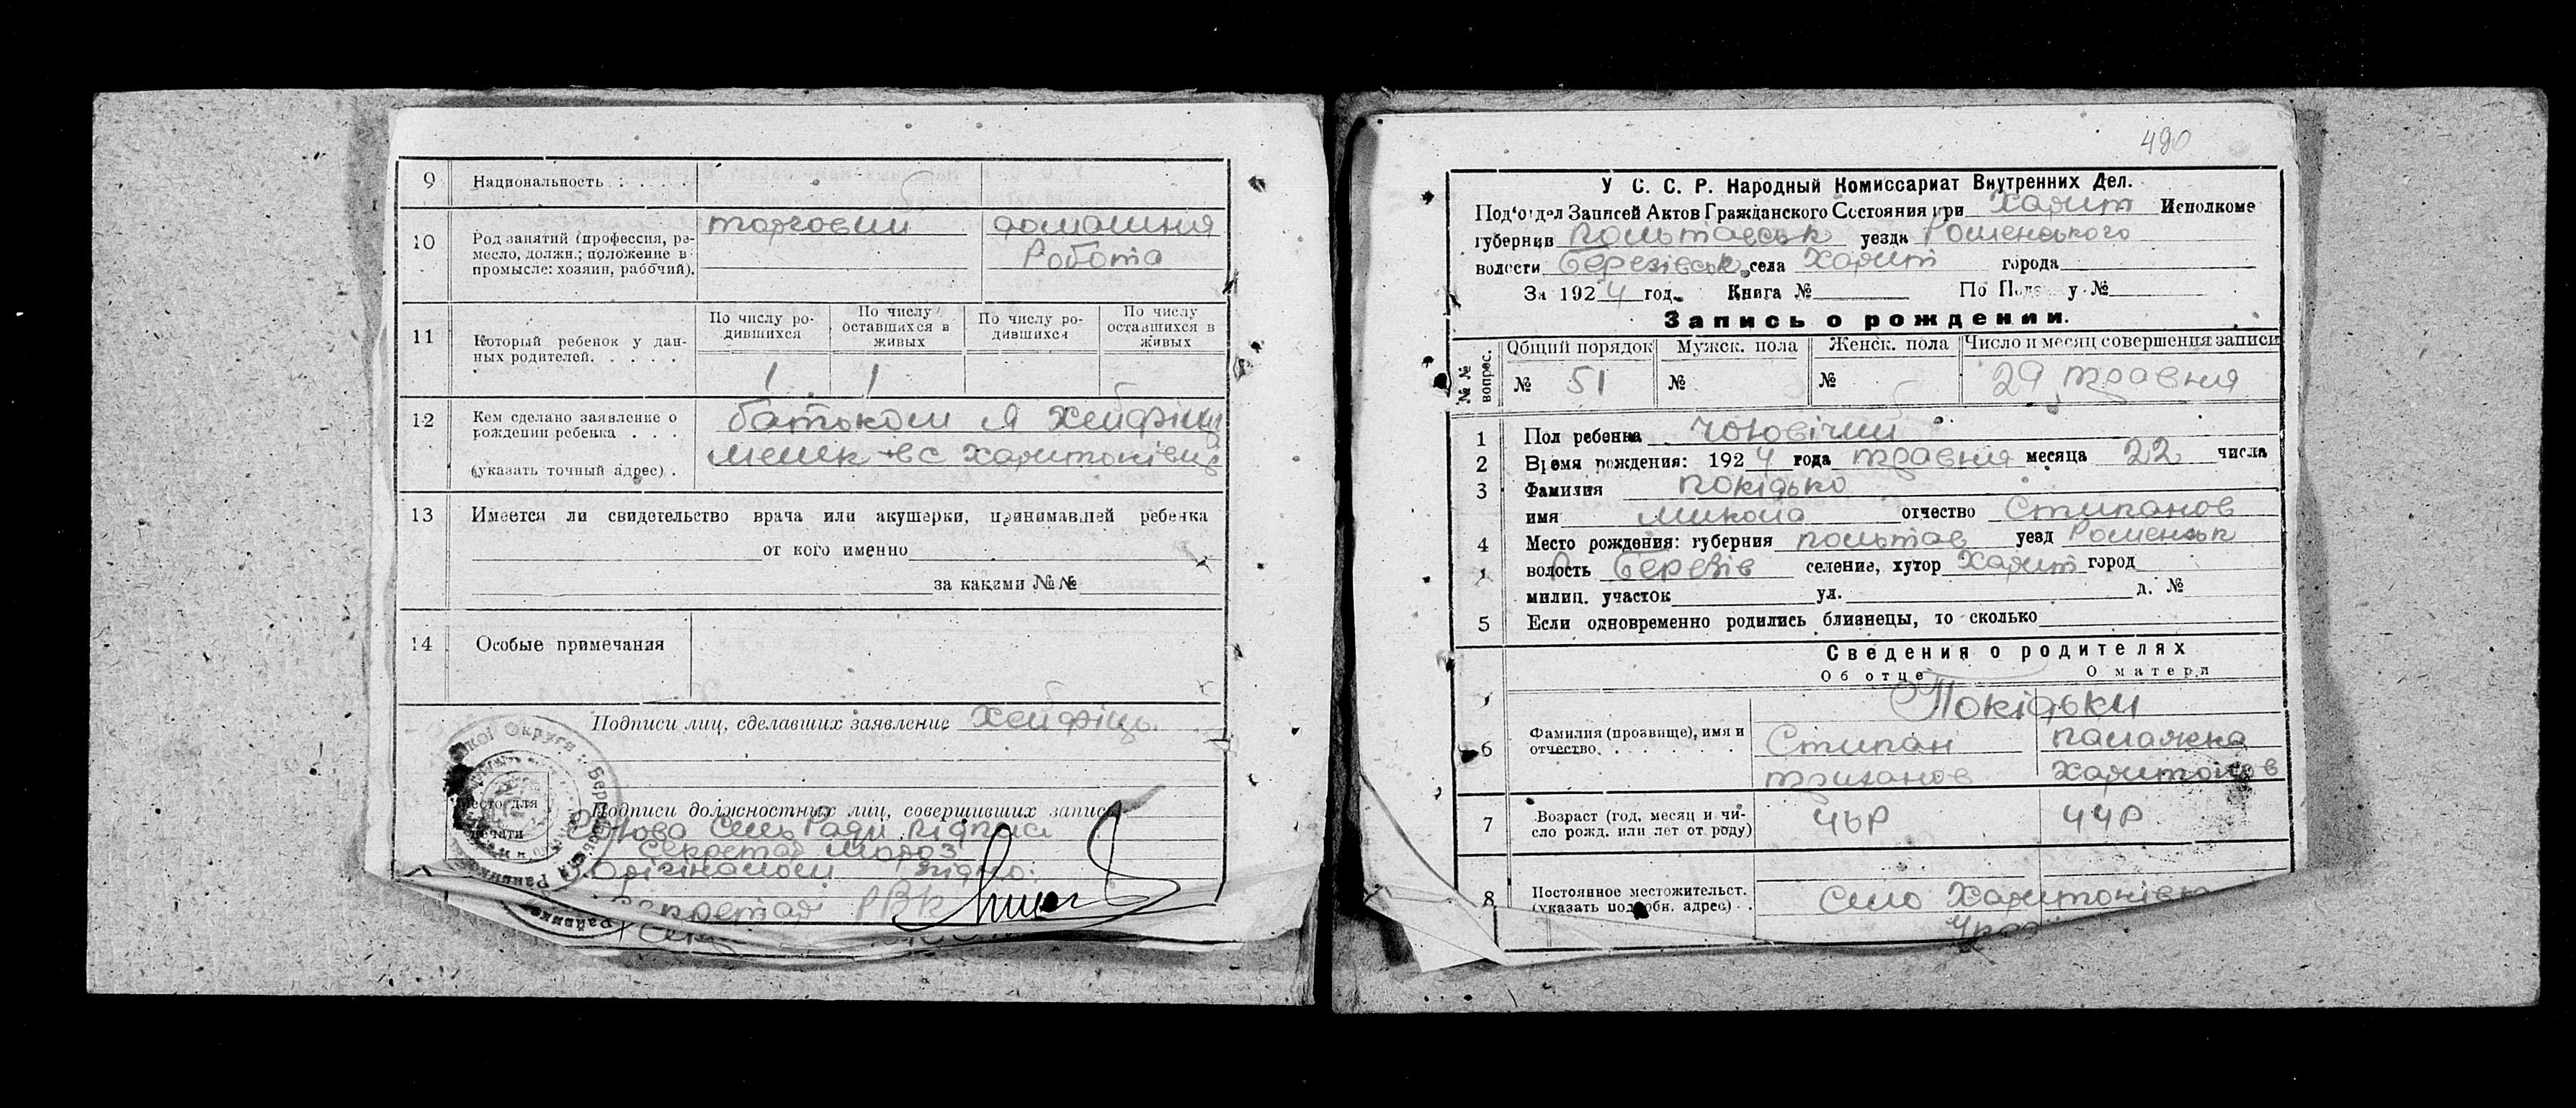 9 Национальность . . . . .
10 Род занятий (профессия, ре-
месло, должн.; положение в
промысле: хозяин, рабочий).
торговий домашня
Робота
11 Который ребенок у дан-
ных родителей. . . . .
По числу ро-
дившихся
По числу
оставшихся в
живых
По числу ро-
дившихся
По числу
оставшихся в
живых
1 1
12 Кем сделано заявление о
рождении ребенка . . .
(указать точный адрес) .
батьком Я Хейфіць
13 Имеется ли свидетельство врача или акушерки, принимавшей ребенка
от кого именно
за какими №№
14 Особые примечания
Подписи лиц, сделавших заявление Хейфіць.
Место для
печати
Подписи должностных лиц, совершивших запись
Голова Сель Ради підпис
Секретар Мороз
З орігіналом згідно:
Секретар РВК
490
У С. С. Р. Народный Комиссариат Внутренних Дел.
Под'отдел Записей Актов Гражданского Состояния при Харит Исполкоме
губернии Польтавськ уезда Роменського
волости Березівськ села Харит города
За 1924 год. Книга № По №
Запись о рождении.
№№ вопрос.
Общий порядок Мужск. пола Женск. пола Число и месяц совершения записи
№ 51 № № 29 травня
1 Пол ребенка чоловічий
2 Время рождения: 1924 года травня месяца 22 числа
3 Фамилия Покідько
имя Микола отчество Стипанов
4 Место рождения: губерния польтав уезд Роменськ
волость Березів селение, хутор Харит город
милиц. участок ул. д. №
5 Если одновременно родились близнецы, то сколько
Сведения о родителях
Об отце О матери
Покідьки
6 Фамилия (прозвище), имя и
отчество. . . . . . .
Стипан палажка
Харитонов
7 Возраст (год, месяц и чи-
сло рожд. или лет от роду)
46р 44р
8 Постоянное местожительст.
(указать подробн. адрес) . .
Село Харитонівк